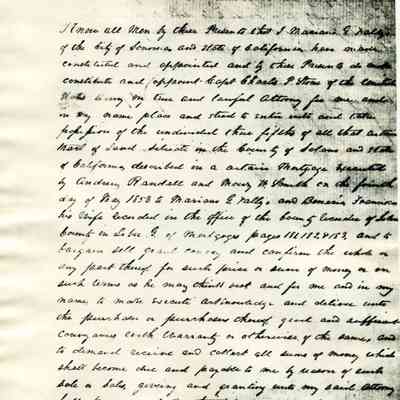 Know all Men by these Presents that I Mariano G. Vallejo
of the City of Sonoma and State of California have made
constituted and appointed and by these Presents do make
constitute and appoint Capt Charles P. Stone of the United
States Army my true and lawful Attorney for me and
in my name place and stead to enter into and take
possession of the undivided three fifths of all that certain
tract of Land situate in the County of Solano and State
of California described in a certain Mortgage executed
by Andrew Randall and
day of May 1853 to Mariano G. Vallejo and Benicia Francisca
his Wife recorded in the office of the County Recorder of Solano
County in Liber G. of Mortgages pages 181, 182, & 183, and to
bargain sell grant convey and confirm the whole or
any part thereof for such price or sum of money or on
such terms as he may think best and for me and in my
name to make execute acknowledge and deliver unto
the purchaser or purchasers thereof good and sufficient
conveyances with Warranty or otherwise of the same and
to demand receive and collect all sums of money which
shall become due and payable to me by reason of such
sale or sales, giving and granting unto my said Attorney